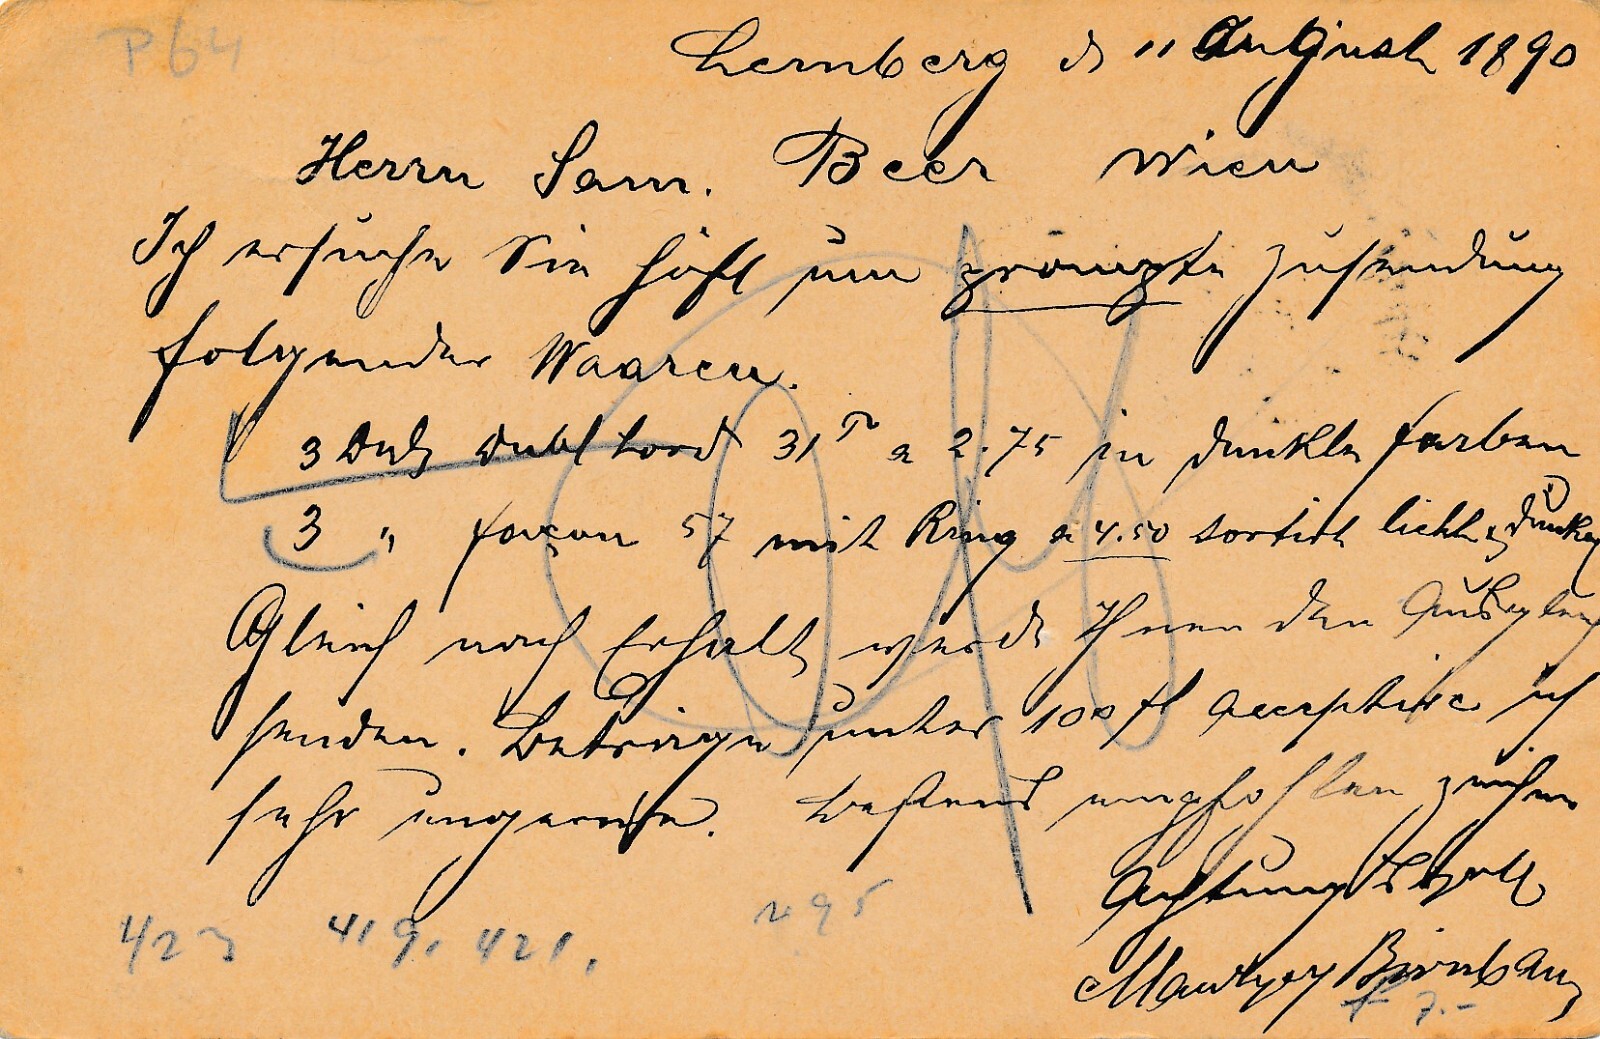 P64
Lemberg d 11 August 1890
Herrn Sam. Beer Wien
Ich ersuche Sie höfl um prompte Zusendung
folgender Waaren.
3 Dutz Dubl Lord 31 a 2.75 in dunkle farben
3 " façon 57 mit Ring a 4.50 sortirt licht & dunkel
Gleich nach Erhalt werde Ihnen den Ausgleich
senden. Beträge unter 100 fl acceptire ich
sehr ungerne. Bestens empfohlen zeichne
Achtungsvoll
Maurycy Birnbaum
423 419. 421.
295
7.-